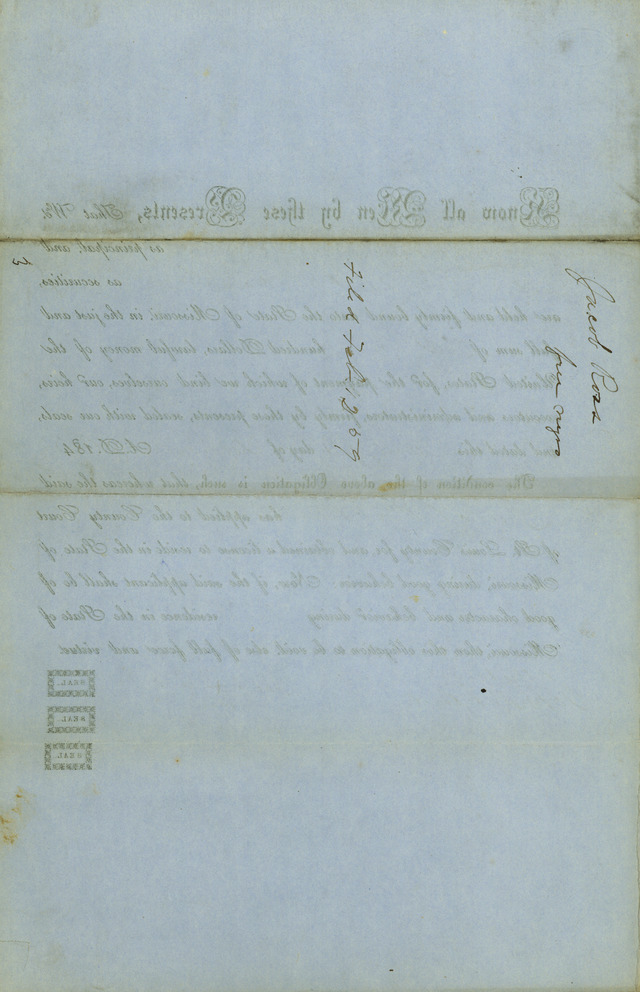 Jacob Ross
free negro
Filed Feb
3
Know all Men by these Presents, That We
as principal, and
as securities,
are held and firmly bound unto the State of Missouri, in the just and
full sum of hundred Dollars, lawful money of the
United States, for the payment of which we bind ourselves, our heirs,
executors and administrators, firmly by these presents, sealed with our seals,
and dated this day of A.D. 184
The condition of the above Obligation is such, that whereas the said
has applied to the County Court
of St. Louis County for and obtained a license to reside in the State of
Missouri, during good behavior: Now, if the said applicant shall be of
good character and behavior during residence in the State of
Missouri, then this obligation to be void, else of full force and virtue.
SEAL.
SEAL.
SEAL.